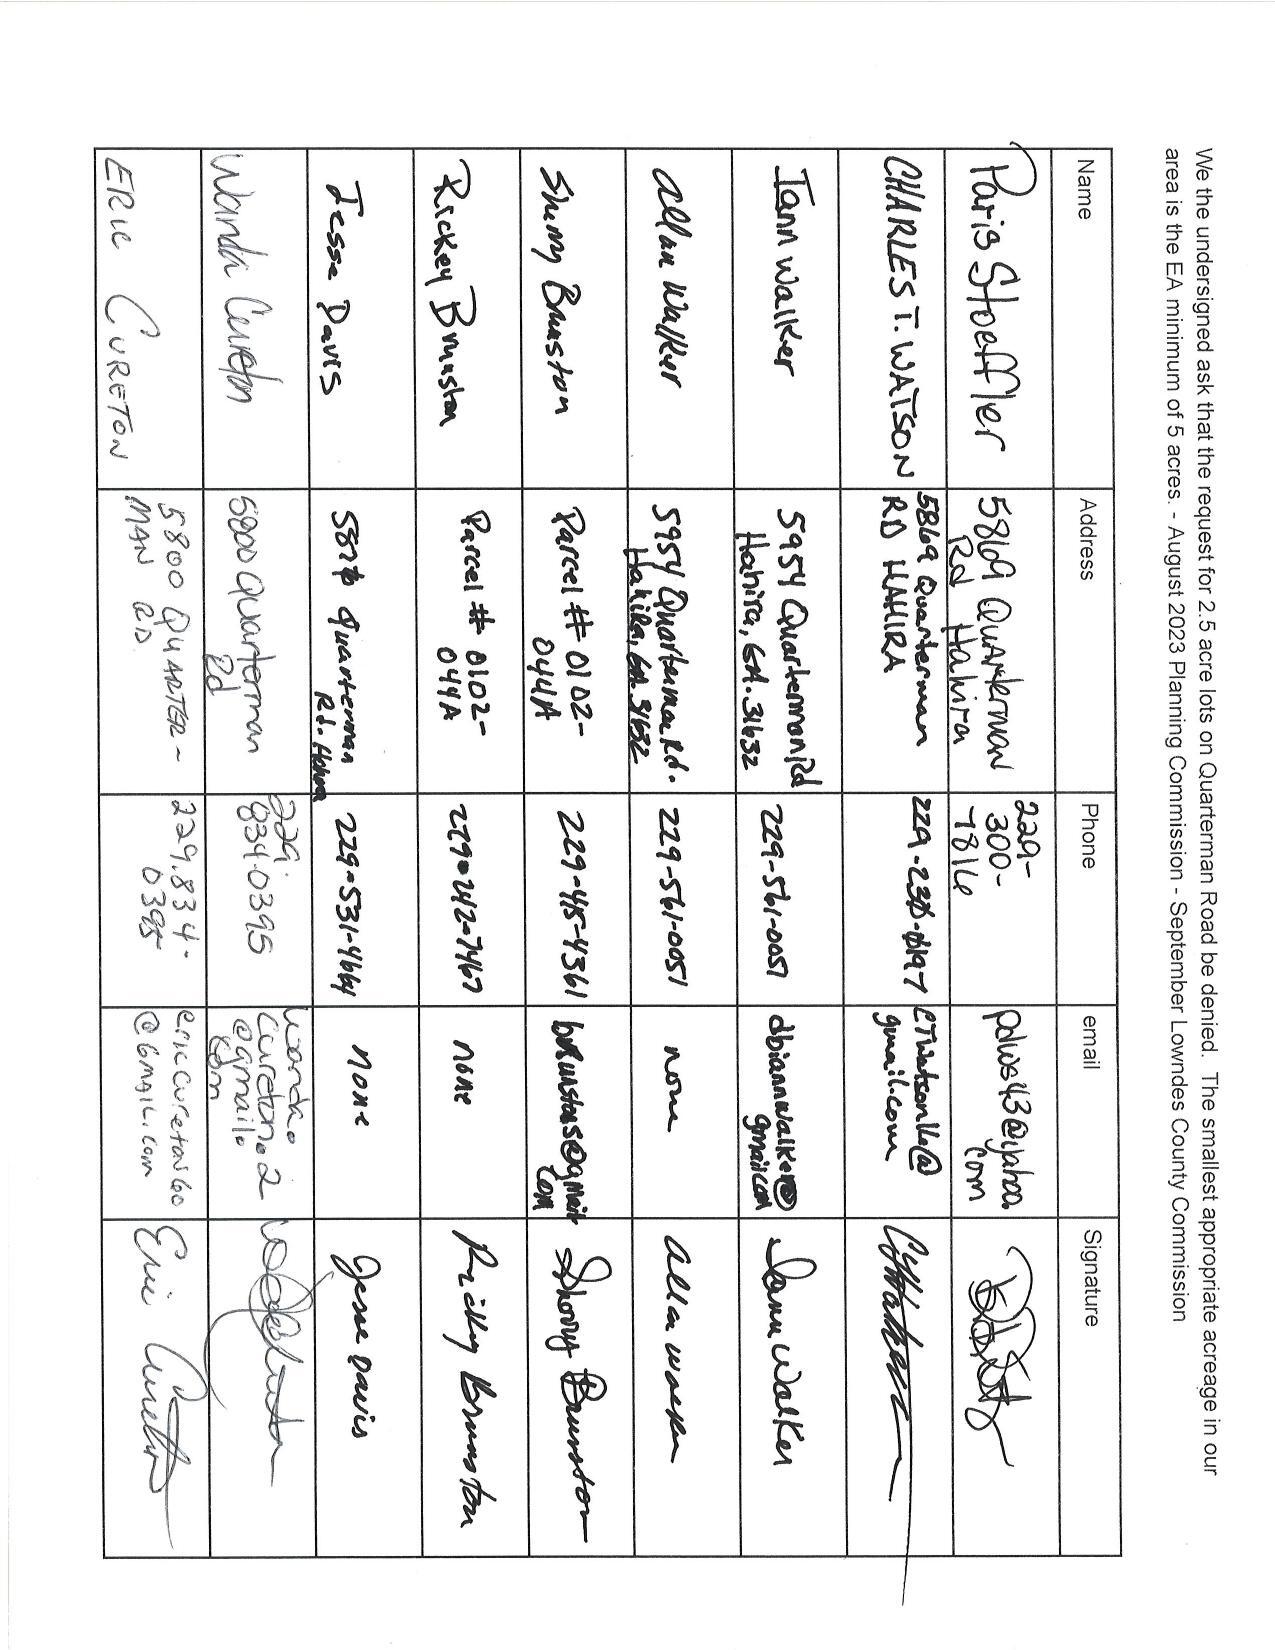 We the undersigned ask that the request for 2.5 acre lots on Quarterman Road be denied.  The smallest appropriate acreage in our
area is the EA minimum of 5 acres. - August 2023 Planning Commission - September Lowndes County Commission
Name
Address
Phone
email
Signature
Paris Stoeffler
5869 Quarterman
Rd Hahira
229-
300-
7816
pdws43@yahoo.
com
CHARLES T. WATSON
5869 Quarterman
RD HAHIRA
229-230-0197
gmail.com
Iann Walker
5954 Quarterman Rd
Hahira, GA. 31632
229-561-0051
dbiannwalker@
gmail.com
Iann Walker
Allan Walker
5954 Quarterman Rd.
Hahira, GA. 31632
229-561-0051
none
Sherry Brunston
Parcel # 0102-
044A
229-415-4361
brunstons@gmail.
com
Sherry Brunston
Rickey Brunston
Parcel # 0102-
044A
229-242-7467
none
Rickey Brunston
Jesse Davis
Quarterman
Rd. Hahira
229-531-4664
none
Jesse Davis
Wanda Cureton
5800 Quarterman
Rd
229.
834-0395
wanda.
cureton.2
@gmail.
com
ERIC CURETON
5800 QUARTER-
MAN RD.
229.834-
0395
ericcureton60
@GMAIL.com
Eric Cureton